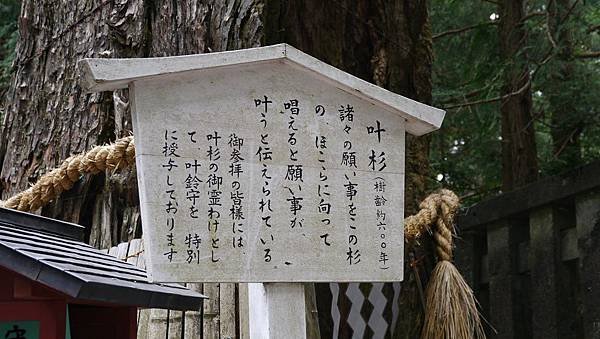 叶杉(樹齢約六〇〇年)
諸々の願い事をこの杉
の、ほこらに向って
唱えると願い事が、
叶うと伝えられている
御参拝の皆様には、
叶杉の御霊わけとし
て、叶鈴守を特別
に授与しております
守